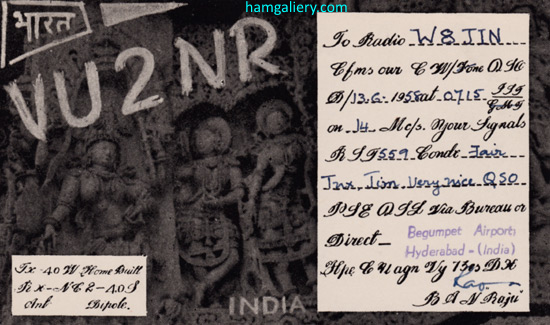 hamgallery.com
भारत
VU2NR
To Radio W8JIN
Cfms our C W/Fone QSO
D/13.6.1958 at 0715 IST
GMT
on 14 Mc/s. Your Signals
R S T 559 Condx Fair
Tnx Jim Very nice QSO
PSE QSL Via Bureau or
Direct_ Begumpet Airport,
Hyderabad-(India)
Hpe C U agn Vy 73s DX
Raju
B A N Raju
Tx 40 W Home Built
Ant Dipole.
INDIA